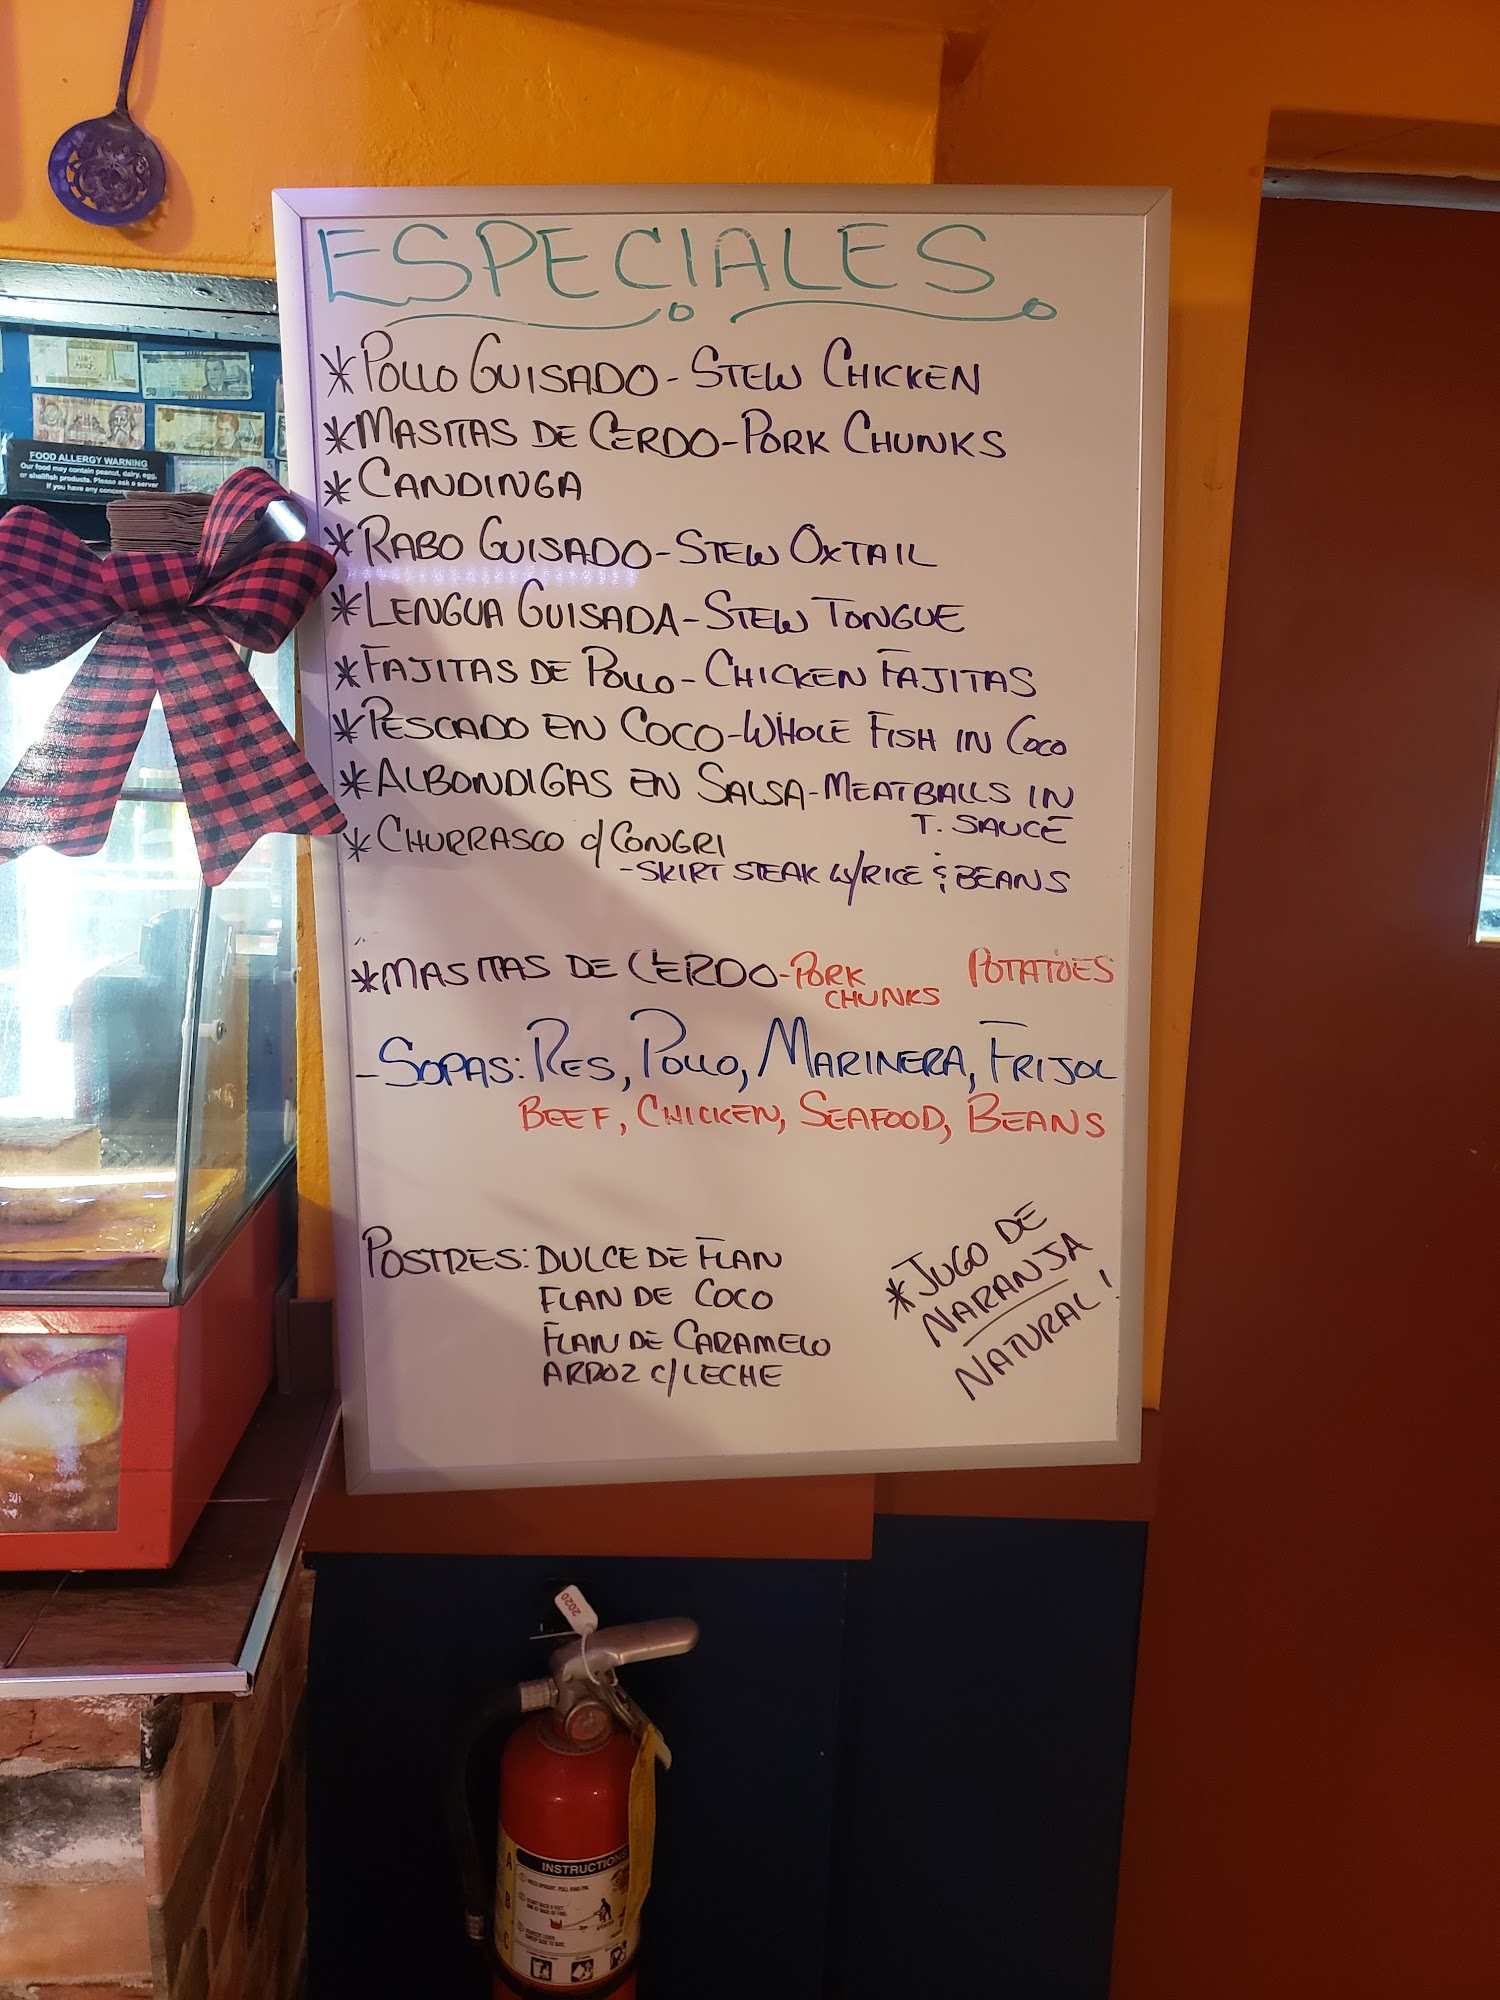 ESPECIALES
*POLLO GUISADO - STEW CHICKEN
*MASITAS DE CERDO - PORK CHUNKS
*CANDINGA
*RABO GUISADO - STEW OXTAIL
*LENGUA GUISADA - STEW TONGUE
*FAJITAS DE POLLO - CHICKEN FAJITAS
*PESCADO EN COCO - WHOLE FISH IN COCO
*ALBONDIGAS EN SALSA - MEATBALLS IN
T. SAUCE
*CHURRASCO c/ CONGRI
- SKIRT STEAK W/RICE & BEANS
*MASITAS DE CERDO - PORK POTATOES
CHUNKS
- SOPAS: RES, POLLO, MARINERA, FRIJOL
BEEF, CHICKEN, SEAFOOD, BEANS
POSTRES: DULCE DE FLAN
FLAN DE COCO
FLAN DE CARAMELO
ARROZ C/LECHE
*JUGO DE
NARANJA
NATURAL!
FOOD ALLERGY WARNING
Our food may contain peanut, dairy, egg,
or shellfish products. Please ask a server
if you have any
2020
INSTRUCTIONS
A
B
C